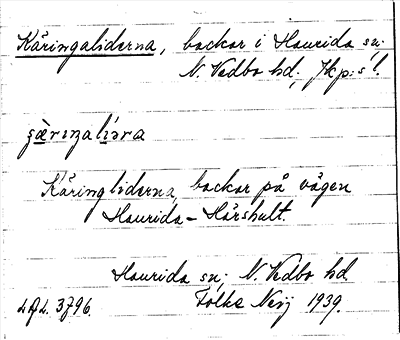 Käringaliderna, backar i Haurida sn;
N. Vedbo hd, Jkp:s l.
Käringliderna, backar på vägen
Haurida - Hårshult.
Haurida sn; N. Vedbo hd
3796. Folke 1939.